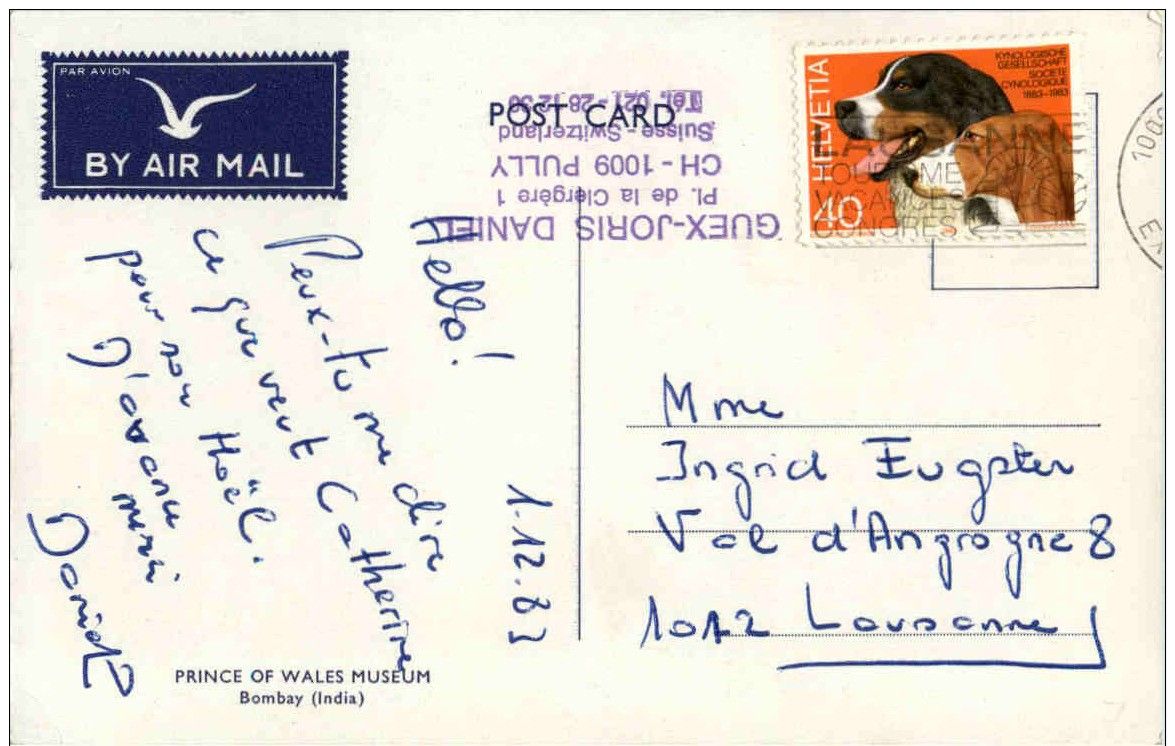 PAR AVION
BY AIR MAIL
POST CARD
GUEX-JORIS DANIEL
Pl. de la Clergère 1
CH - 1009 PULLY
Suisse - Switzerland
Tél. 021 - 28 12 50
HELVETIA
40
KYNOLOGISCHE
GESELLSCHAFT
SOCIETE
CYNOLOGIQUE
1883-1983
LAUSANNE
TOURISME
VACANCES
CONGRES
1000
1.12.83
Hello!
Peux-tu me dire
ce que veut Catherine
pour son Noël.
D'avance merci
Daniel
Mme
Ingrid Eugster
Val d'Angrogne 8
1012 Lausanne
PRINCE OF WALES MUSEUM
Bombay (India)